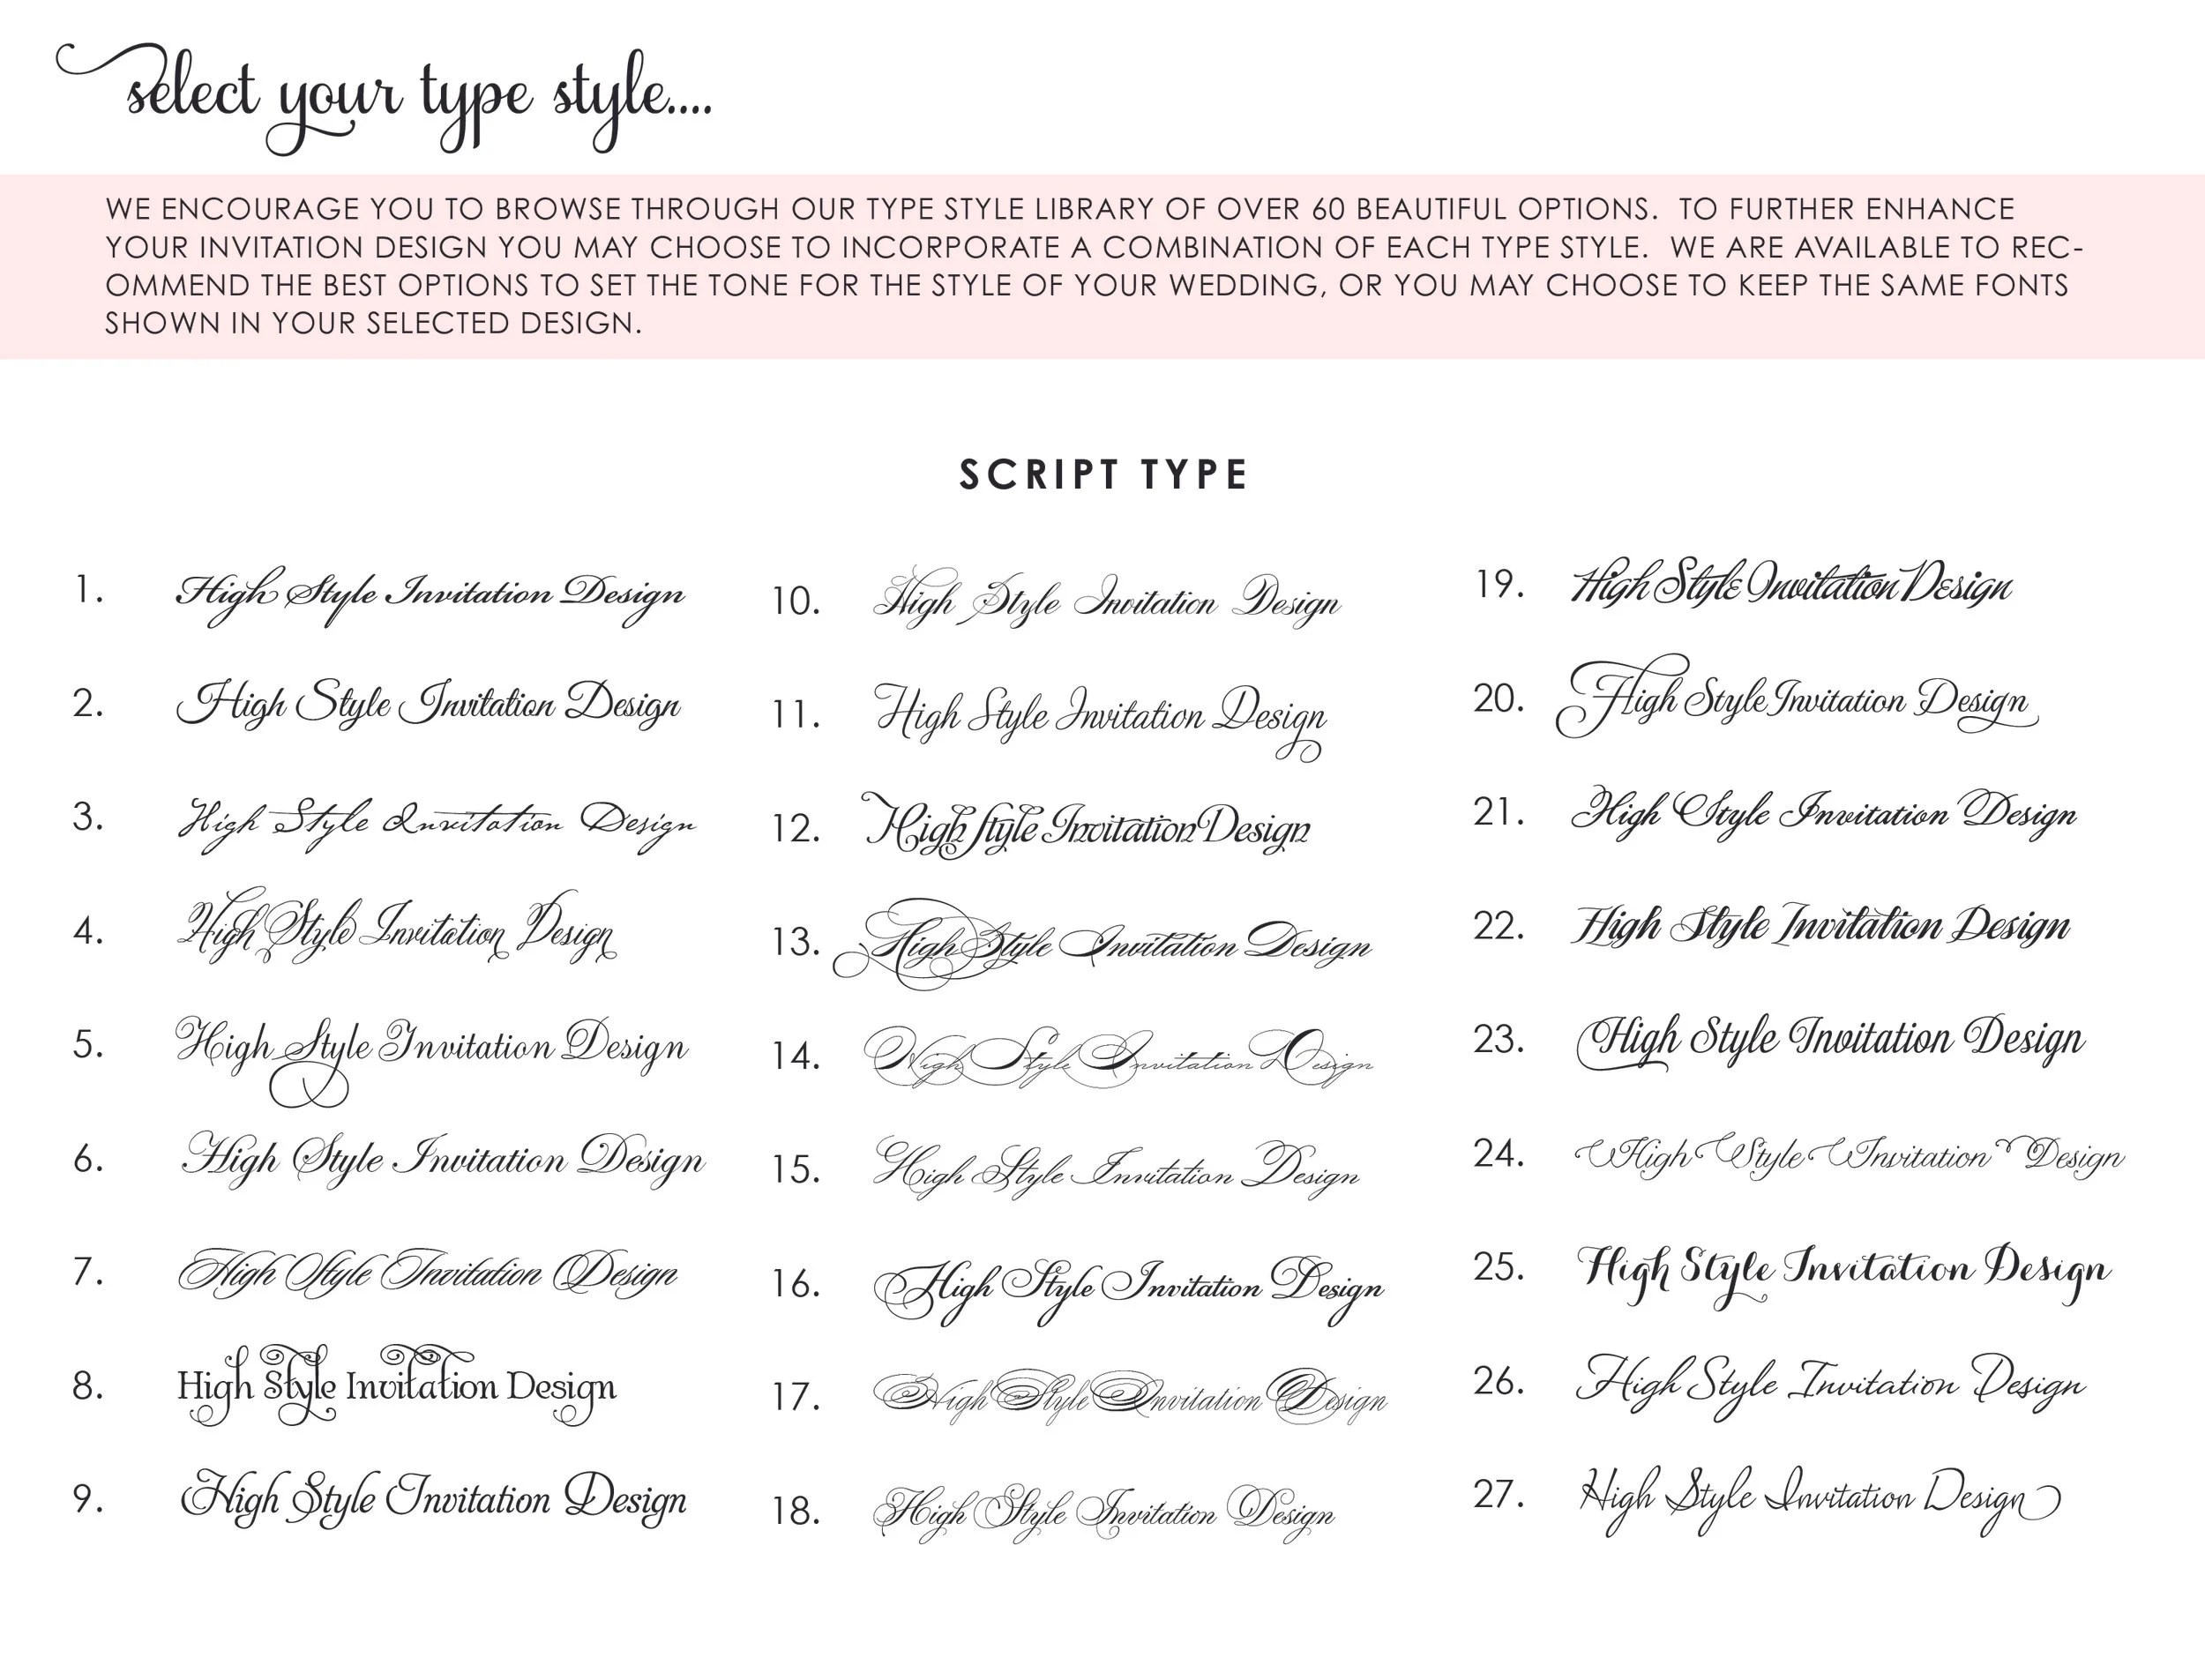 select your type style....
WE ENCOURAGE YOU TO BROWSE THROUGH OUR TYPE STYLE LIBRARY OF OVER 60 BEAUTIFUL OPTIONS.  TO FURTHER ENHANCE
YOUR INVITATION DESIGN YOU MAY CHOOSE TO INCORPORATE A COMBINATION OF EACH TYPE STYLE.  WE ARE AVAILABLE TO REC-
OMMEND THE BEST OPTIONS TO SET THE TONE FOR THE STYLE OF YOUR WEDDING, OR YOU MAY CHOOSE TO KEEP THE SAME FONTS
SHOWN IN YOUR SELECTED DESIGN.
SCRIPT TYPE
1. High Style Invitation Design
2. High Style Invitation Design
3. High Style Invitation Design
4. High Style Invitation Design
5. High Style Invitation Design
6. High Style Invitation Design
7. High Style Invitation Design
8. High Style Invitation Design
9. High Style Invitation Design
10. High Style Invitation Design
11. High Style Invitation Design
12. High Style Invitation Design
13. High Style Invitation Design
14. High Style Invitation Design
15. High Style Invitation Design
16. High Style Invitation Design
17. High Style Invitation Design
18. High Style Invitation Design
19. High Style Invitation Design
20. High Style Invitation Design
21. High Style Invitation Design
22. High Style Invitation Design
23. High Style Invitation Design
24. High Style Invitation Design
25. High Style Invitation Design
26. High Style Invitation Design
27. High Style Invitation Design